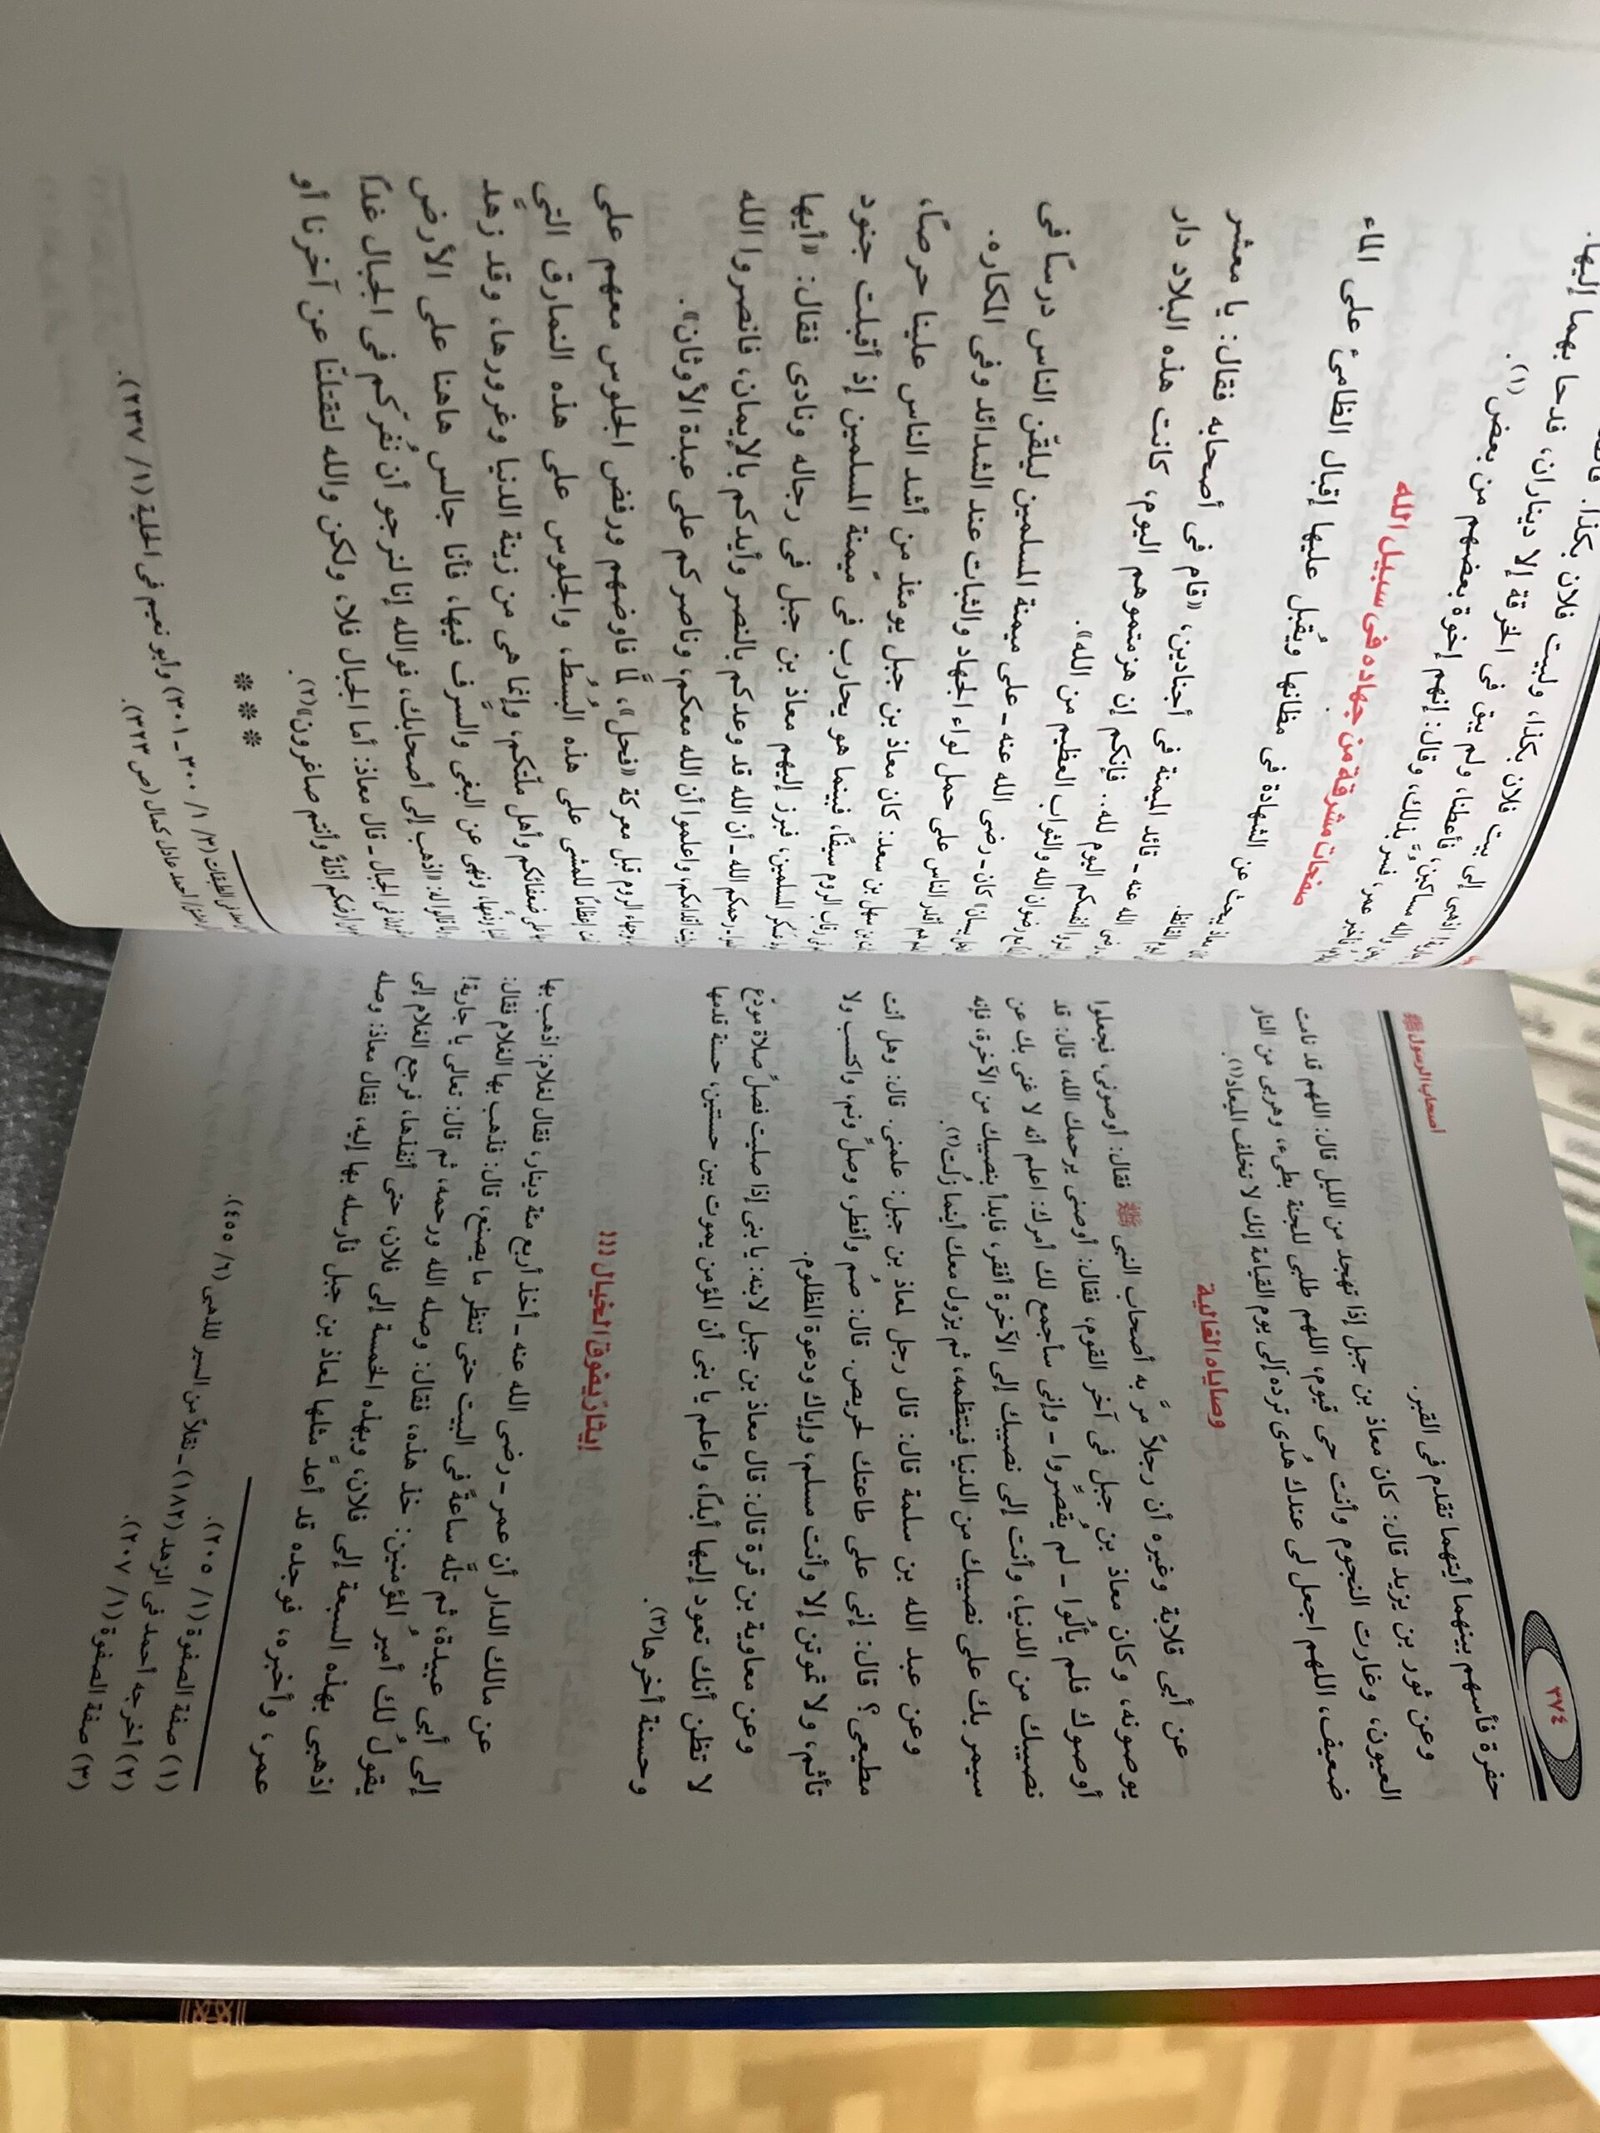 ٣٧٤
أصحاب الرسول ﷺ
حفرة فأسهم بينهما أيتهما تقدم فى القبر.
وعن ثور بن يزيد قال: كان معاذ بن جبل إذا تهجد من الليل قال: اللهم قد نامت
العيون، وغارت النجوم وأنت حى قيوم، اللهم طلبى للجنة بطىء، وهربى من النار
ضعيف، اللهم اجعل لى عندك هُدى ترده إلى يوم القيامة إنك لا تخلف الميعاد(١).
وصاياه الغالية
عن أبى قلابة وغيره أن رجلاً مرَّ به أصحاب النبى ﷺ فقال: أوصونى، فجعلوا
يوصونه، وكان معاذ بن جبل فى آخر القوم، فقال: أوصنى يرحمك الله، قال: قد
أوصوك فلم يألُوا ـ لم يُقصِّروا ـ وإنى سأجمع لك أمرك: اعلم أنه لا غنى بك عن
نصيبك من الدنيا، وأنت إلى نصيبك إلى الآخرة أفقر، فابدأ بنصيبك من الآخرة، فإنه
سيمر بك على نصيبك من الدنيا فينتظمه، ثم يزول معك أينما زُلت(٢).
وعن عبد الله بن سلمة قال: قال رجل لمعاذ بن جبل: علمنى. قال: وهل أنت
مطيعى؟ قال: إنى على طاعتك لحريص. قال: صُم وأفطر، وصلِّ ونم، واكتسب ولا
تأثم، ولا تموتن إلا وأنت مسلم، وإياك ودعوة المظلوم.
وعن معاوية بن قرة قال: قال معاذ بن جبل لابنه: يا بنى إذا صليت فصلِّ صلاة مودِّع
لا تظن أنك تعود إليها أبدًا، واعلم يا بنى أن المؤمن يموت بين حسنتين، حسنة قدمها
وحسنة أخرها(٣).
إيثار يفوق الخيال !!!
عن مالك الدار أن عمر ـ رضى الله عنه ـ أخذ أربع مئة دينار، فقال لغلام: اذهب بها
إلى أبى عبيدة، ثم تلَّه ساعةً فى البيت حتى تنظر ما يصنع، قال: فذهب بها الغلام فقال:
يقولُ لك أميرُ المؤمنين: خذ هذه، فقال: وصله الله ورحمه، ثم قال: تعالى يا جارية!
اذهبى بهذه السبعة إلى فلان، وبهذه الخمسة إلى فلان، حتى أنفذها، فرجع الغلام إلى
عمر، وأخبره، فوجده قد أعدَّ مثلها لمعاذ بن جبل فأرسله بها إليه، فقال معاذ: وصله
(١) صفة الصفوة (١/ ٢٠٥).
(٢) أخرجه أحمد فى الزهد (١٨٢) ـ نقلاً من السير للذهبى (٦/ ٤٥٥).
(٣) صفة الصفوة (١/ ٢٠٧).
إلى بيت فلان بكذا، ولبيت فلان بكذا،
فأعطنا، ولم يبق فى الخرقة إلا ديناران، فدحا بهما إليها.
بذلك، وقال: إنهم إخوة بعضهم من بعض (١).
صفحات مشرقة من جهاده فى سبيل الله
يبحث عن الشهادة فى مظانها ويُقبل عليها إقبال الظامئ على الماء
الله عنه ـ قائد الميمنة فى أجنادين، «قام فى أصحابه فقال: يا معشر
أنفسكم اليوم لله.. فإنكم إن هزمتموهم اليوم، كانت هذه البلاد دار
رضوان الله والثواب العظيم من الله».
كان ـ رضى الله عنه ـ على ميمنة المسلمين ليلقّن الناس درسًا فى
الناس على حمل لواء الجهاد والثبات عند الشدائد وفى المكاره.
بن سهل بن سعد: كان معاذ بن جبل يومئذ من أشد الناس علينا حرصًا،
رقاب الروم سيفًا، فبينما هو يحارب فى ميمنة المسلمين إذ أقبلت جنود
المسلمين، فبرز إليهم معاذ بن جبل فى رجاله ونادى فقال: «أيها
رحمكم الله ـ أن الله قد وعدكم بالنصر وأيدكم بالإيمان، فانصروا الله
أقدامكم، واعلموا أن الله معكم، وناصركم على عبدة الأوثان».
الروم قبل معركة «فحل»، لمَّا فاوضهم ورفض الجلوس معهم على
للمشى على هذه البُسُط، والجلوس على هذه النمارق التى
على ضعفائكم وأهل ملّتكم، وإنما هى من زينة الدنيا وغرورها، وقد زهَّد
ونهى عن البغى والسرف فيها، فأنا جالس هاهنا على الأرض
قالوا له: «اذهب إلى أصحابك، فوالله إنا لنرجو أن نُفرّكم فى الجبال غدًا
فى الجبال ـ قال معاذ: أما الجبال فلا، ولكن والله لتقتلنّا عن آخرنا أو
أرضكم أذلةً وأنتم صاغرون»(٢).
* * *
فى الطبقات (٣/ ١/ ٣٠٠ ـ ٣٠١) وأبو نعيم فى الحلية (١/ ٢٣٧).
أحمد عادل كمال (ص ٣٢٣).